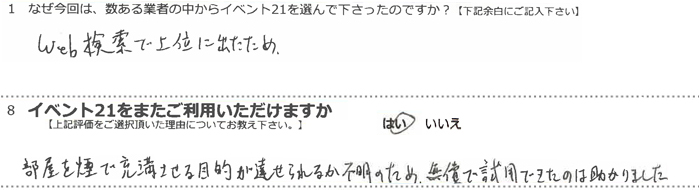 1 なぜ今回は、数ある業者の中からイベント21を選んで下さったのですか？【下記余白にご記入下さい】
Web検索で上位に出たため.
8 イベント21をまたご利用いただけますか
はい いいえ
【上記評価をご選択頂いた理由についてお教え下さい。】
部屋を煙で充満させる目的が達せられるか不明のため、無償で試用できたのは助かりました